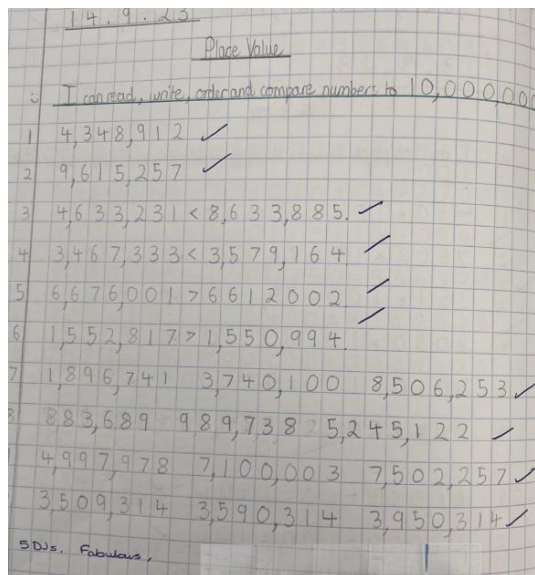 14.9.23
Place Value
I can read, write, order and compare numbers to 10,000,000
1 4,348,912
2 9,615,257
3 4,633,231 < 8,633,885.
4 3,467,333 < 3,579,164
5 6,676,001 > 6612002
6 1,552,817 > 1,550,994.
7 1,896,741 3,740,100 8,506,253
8 883,689 989,738 5,245,122
4,997,978 7,100,003 7,502,257
3,509,314 3,590,314 3,950,314
5DJs. Fabulous,